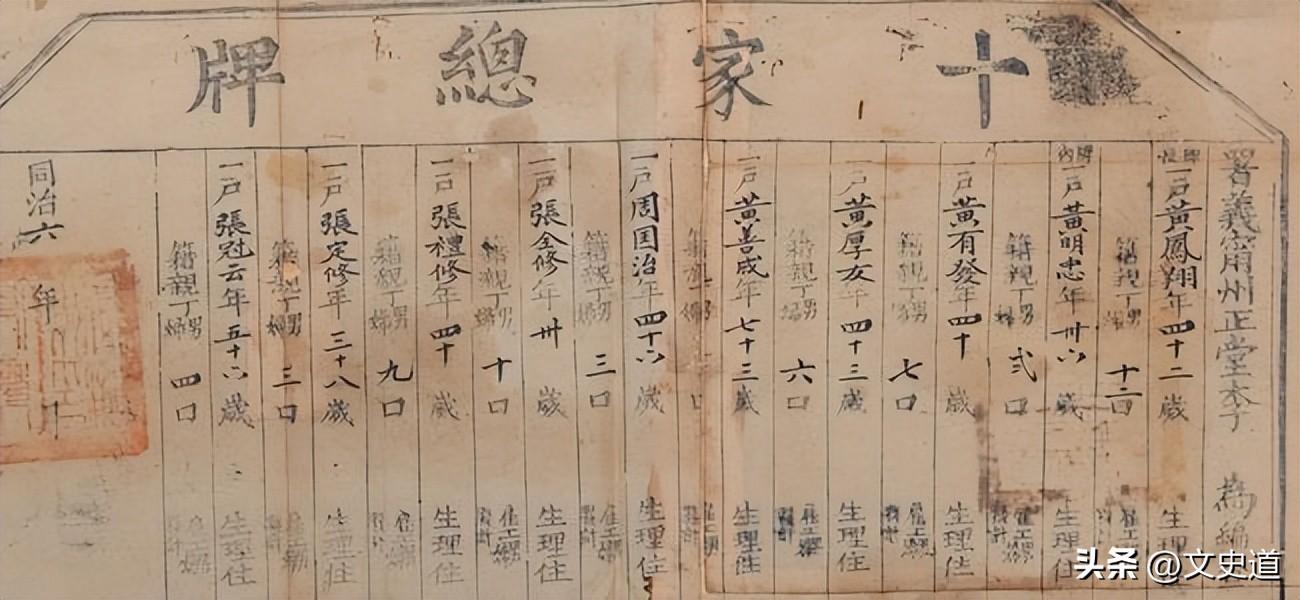 十家總牌
署義寧州正堂李 為編
牌長一戶黃鳳翔年四十二歲 生理
籍親丁男婦十二口 雇工
牌內一戶黃明忠年卅六歲 生理住
籍親丁男婦弍口 雇工
一戶黃有發年四十歲 生理住
籍親丁男婦七口 雇工
一戶黃厚友年四十三歲 生理住
籍親丁男婦六口 雇工
一戶黃善成年七十三歲 生理住
籍親丁男婦 口 雇工
一戶周国治年四十六歲 生理住
籍親丁男婦三口 雇工
一戶張全修年卅歲 生理住
籍親丁男婦十口 雇工
一戶張禮修年四十歲 生理住
籍親丁男婦九口 雇工
一戶張定修年三十八歲 生理住
籍親丁男婦三口 雇工
一戶張冠云年五十六歲 生理住
籍親丁男婦四口 雇工
同治六年 月
头条 @文史道